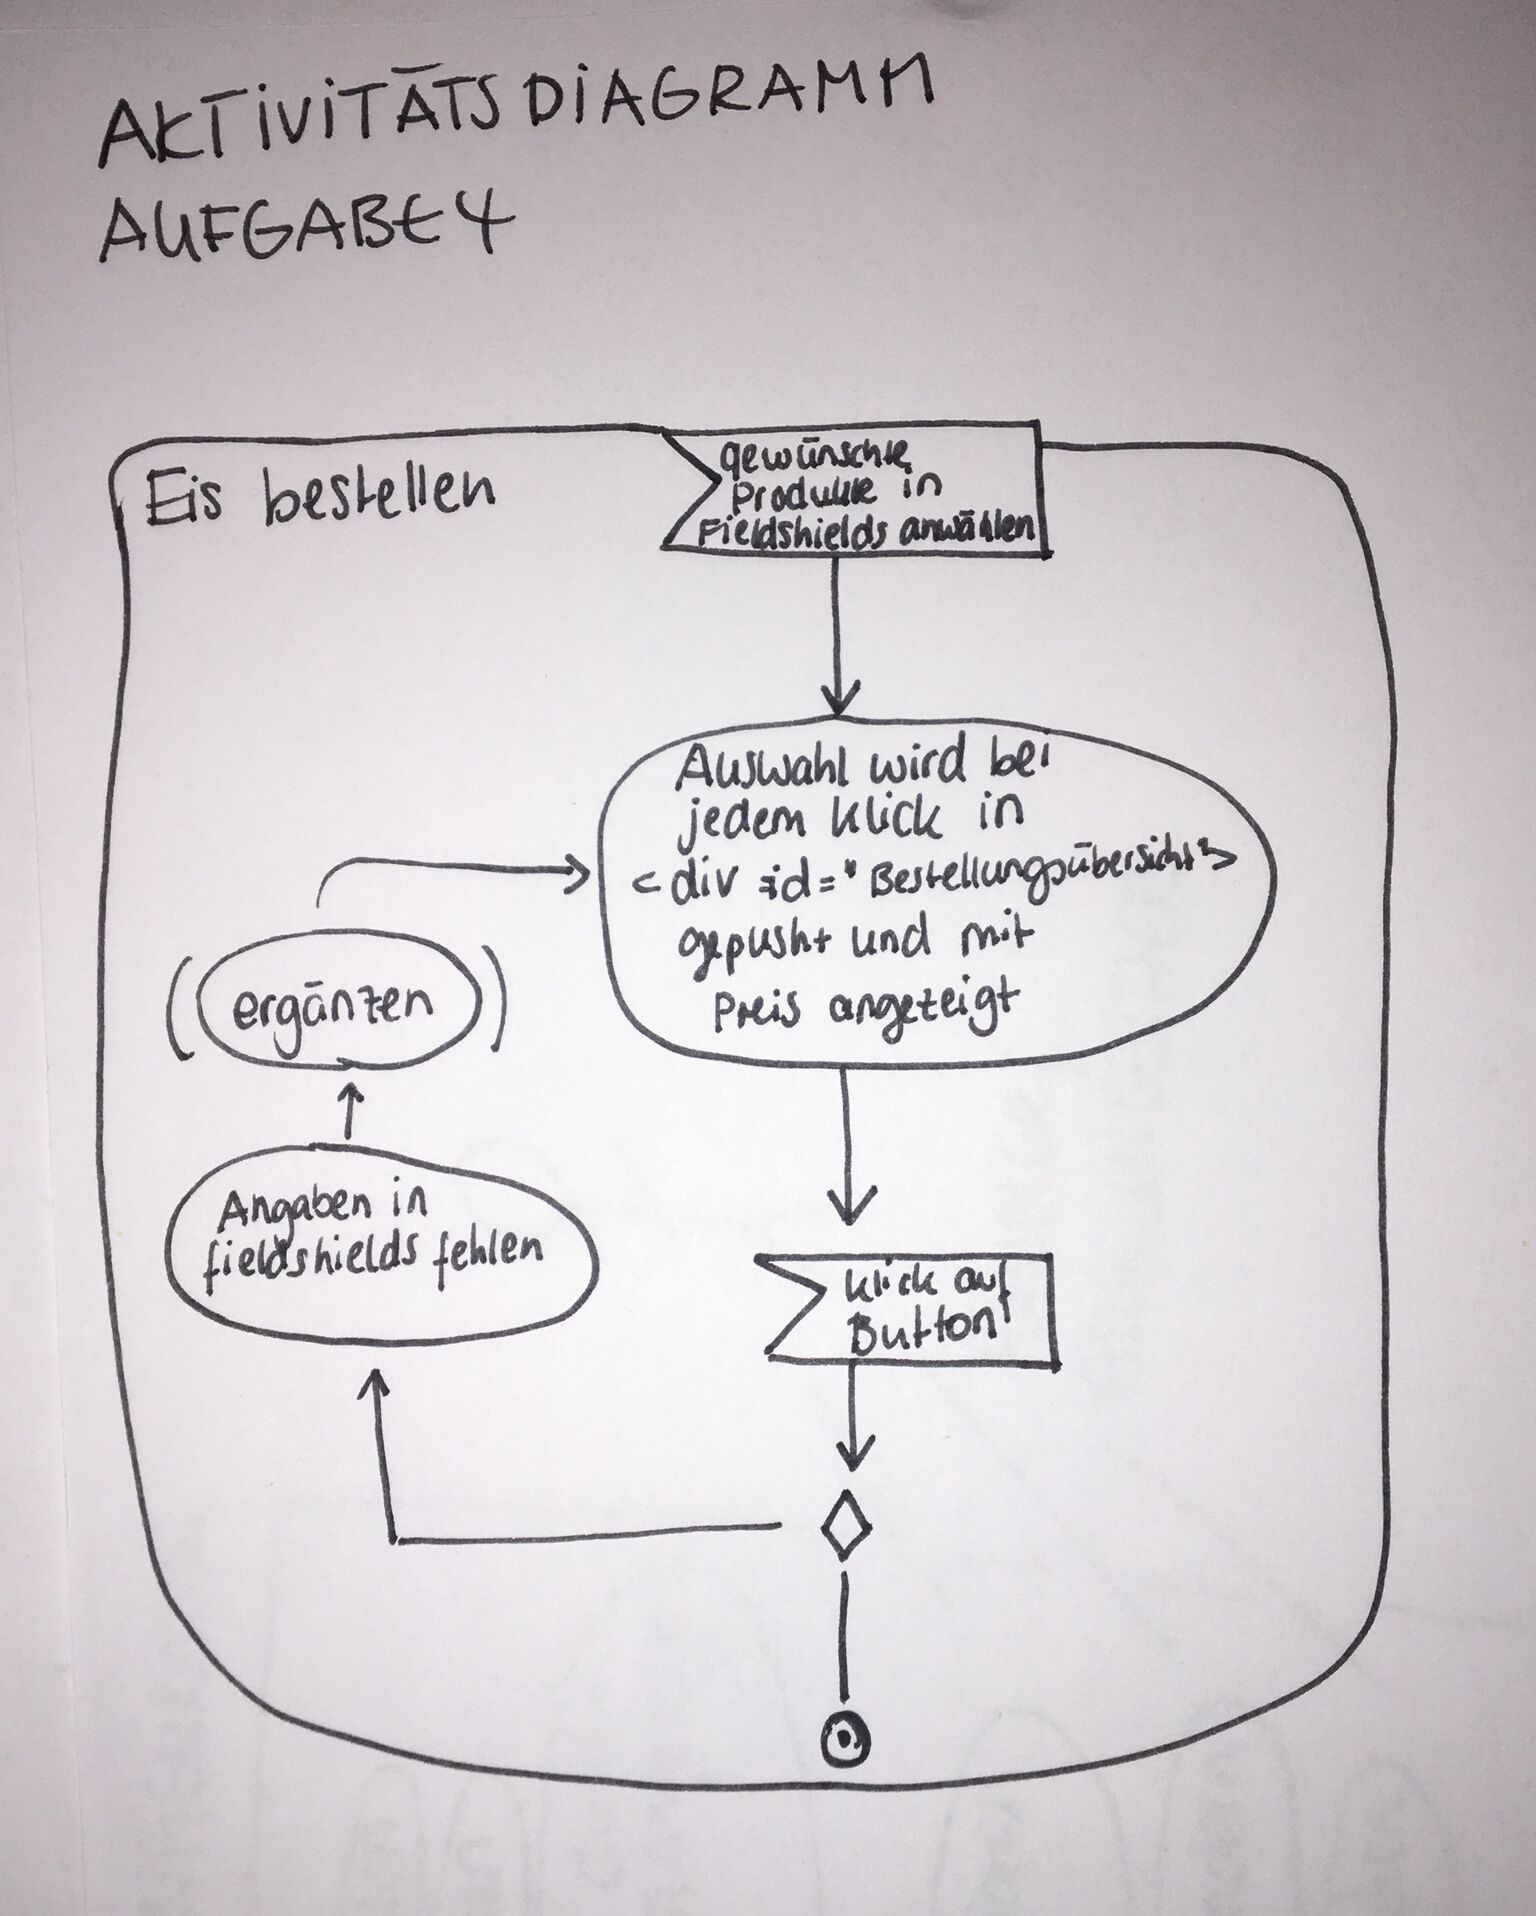 AKTIVITÄTSDIAGRAMM
AUFGABE 4
Eis bestellen
gewünschte
Produkte in
Fieldshields anwählen
Auswahl wird bei
jedem Klick in
<div id="Bestellungsübersicht">
gepusht und mit
Preis angezeigt
(ergänzen)
Angaben in
fieldshields fehlen
Klick auf
Button